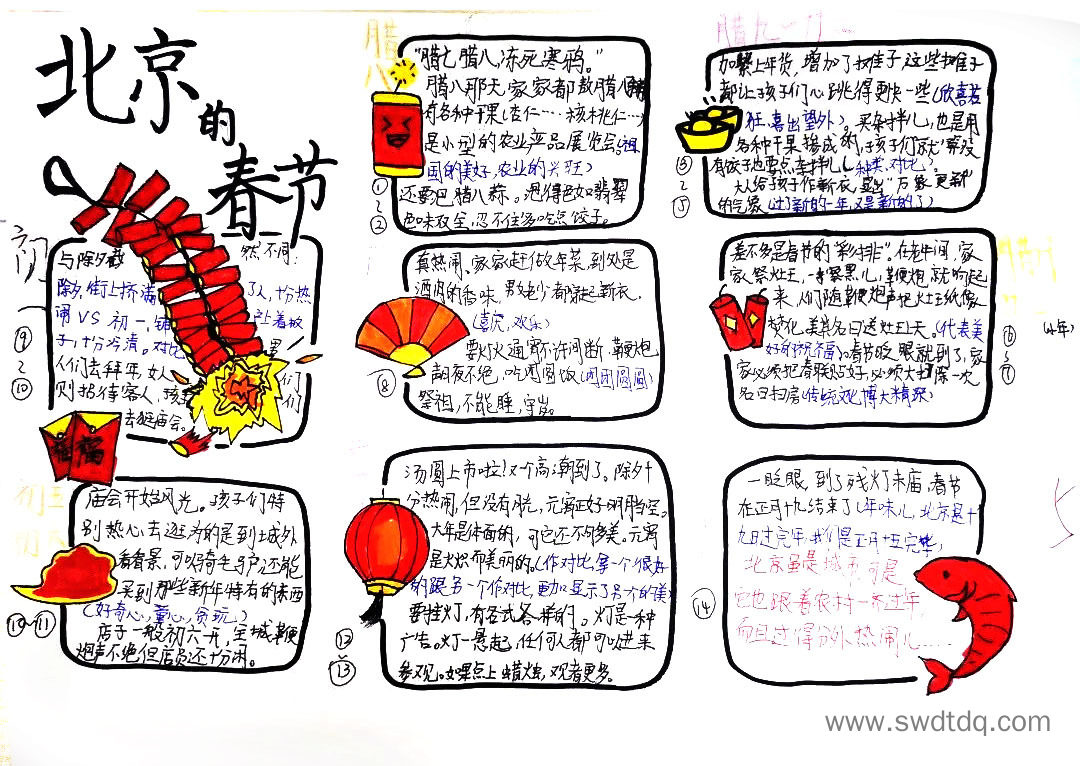 北京
的
春节
腊
八
"腊七腊八冻死寒鸦。"
腊八那天家家都熬腊八粥
有各种干果(杏仁…核桃仁…)
是小型的农业产品展览会。(祖
国的美好,农业的兴旺)
还要泡腊八蒜。泡得色如翡翠
色味双全,忍不住多吃点饺子。
①
~
②
腊九一
加紧上年货,增加了摊子这些摊子
都让孩子们心跳得更快一些(欣喜若
狂,喜出望外)。买杂拌儿,也是用
各种干果掺成的,孩子们就"宁没
有饺子也要点杂拌儿(种类,对比)。
大人给孩子作新衣,显出"万象更新"
的气象(过了新的一年,又是新的了)
差不多是春节的"彩排"。在老年间,家
家祭灶王,一擦黑儿,鞭炮就响起
来,人们随鞭炮声把灶王纸像
焚化,美其名曰送灶王上天。(代表美
好的祝福)。春节眨眼就到了,家
家必须把春联贴好,必须大扫除一次
名曰扫房(传统文化博大精深)
⑥
~
⑦
(小年)
真热闹。家家赶做年菜,到处是
酒肉的香味,男女老少都穿起新衣,
(喜庆,欢乐)
要灯火通宵不许间断,鞭炮
朝夜不绝,吃团圆饭(团团圆圆)
祭祖,不能睡,守岁。
⑧
与除夕截 然不同:
除夕街上挤满 了人,十分热
闹VS初一,铺
子,十分冷清。对比
人们去拜年,女人
则招待客人,孩
去逛庙会。
⑨
~
⑩
福
庙会开始风光。孩子们特
别热心去逛,为的是到城外
看看景,可以骑毛驴还能
买到那些新年特有的东西
(好奇心,童心,贪玩)
店子一般初六开,全城鞭
炮声不绝但店员还十分闲。
⑩-⑪
汤圆上市啦!又个高潮到了。除夕十
分热闹,但没有月光,元宵正好明月当空。
大年是体面的,可它还不够美。元宵
是火炽而美丽的。(作对比,拿一个很好
的跟另一个作对比,更加显示了另一个的美)
要挂灯,有各式各样的。灯是一种
广告。灯一悬起,任何人都可以进来
参观。如果点上蜡烛,观者更多。
⑫
~
⑬
一眨眼,到了残灯末庙,春节
在正月十九结束了(年味儿,北京是十
九日过完年,我们是正月十五完毕)
北京虽是城市,可是
它也跟着农村一齐过年
而且过得分外热闹儿……
⑭
www.swdtdq.com